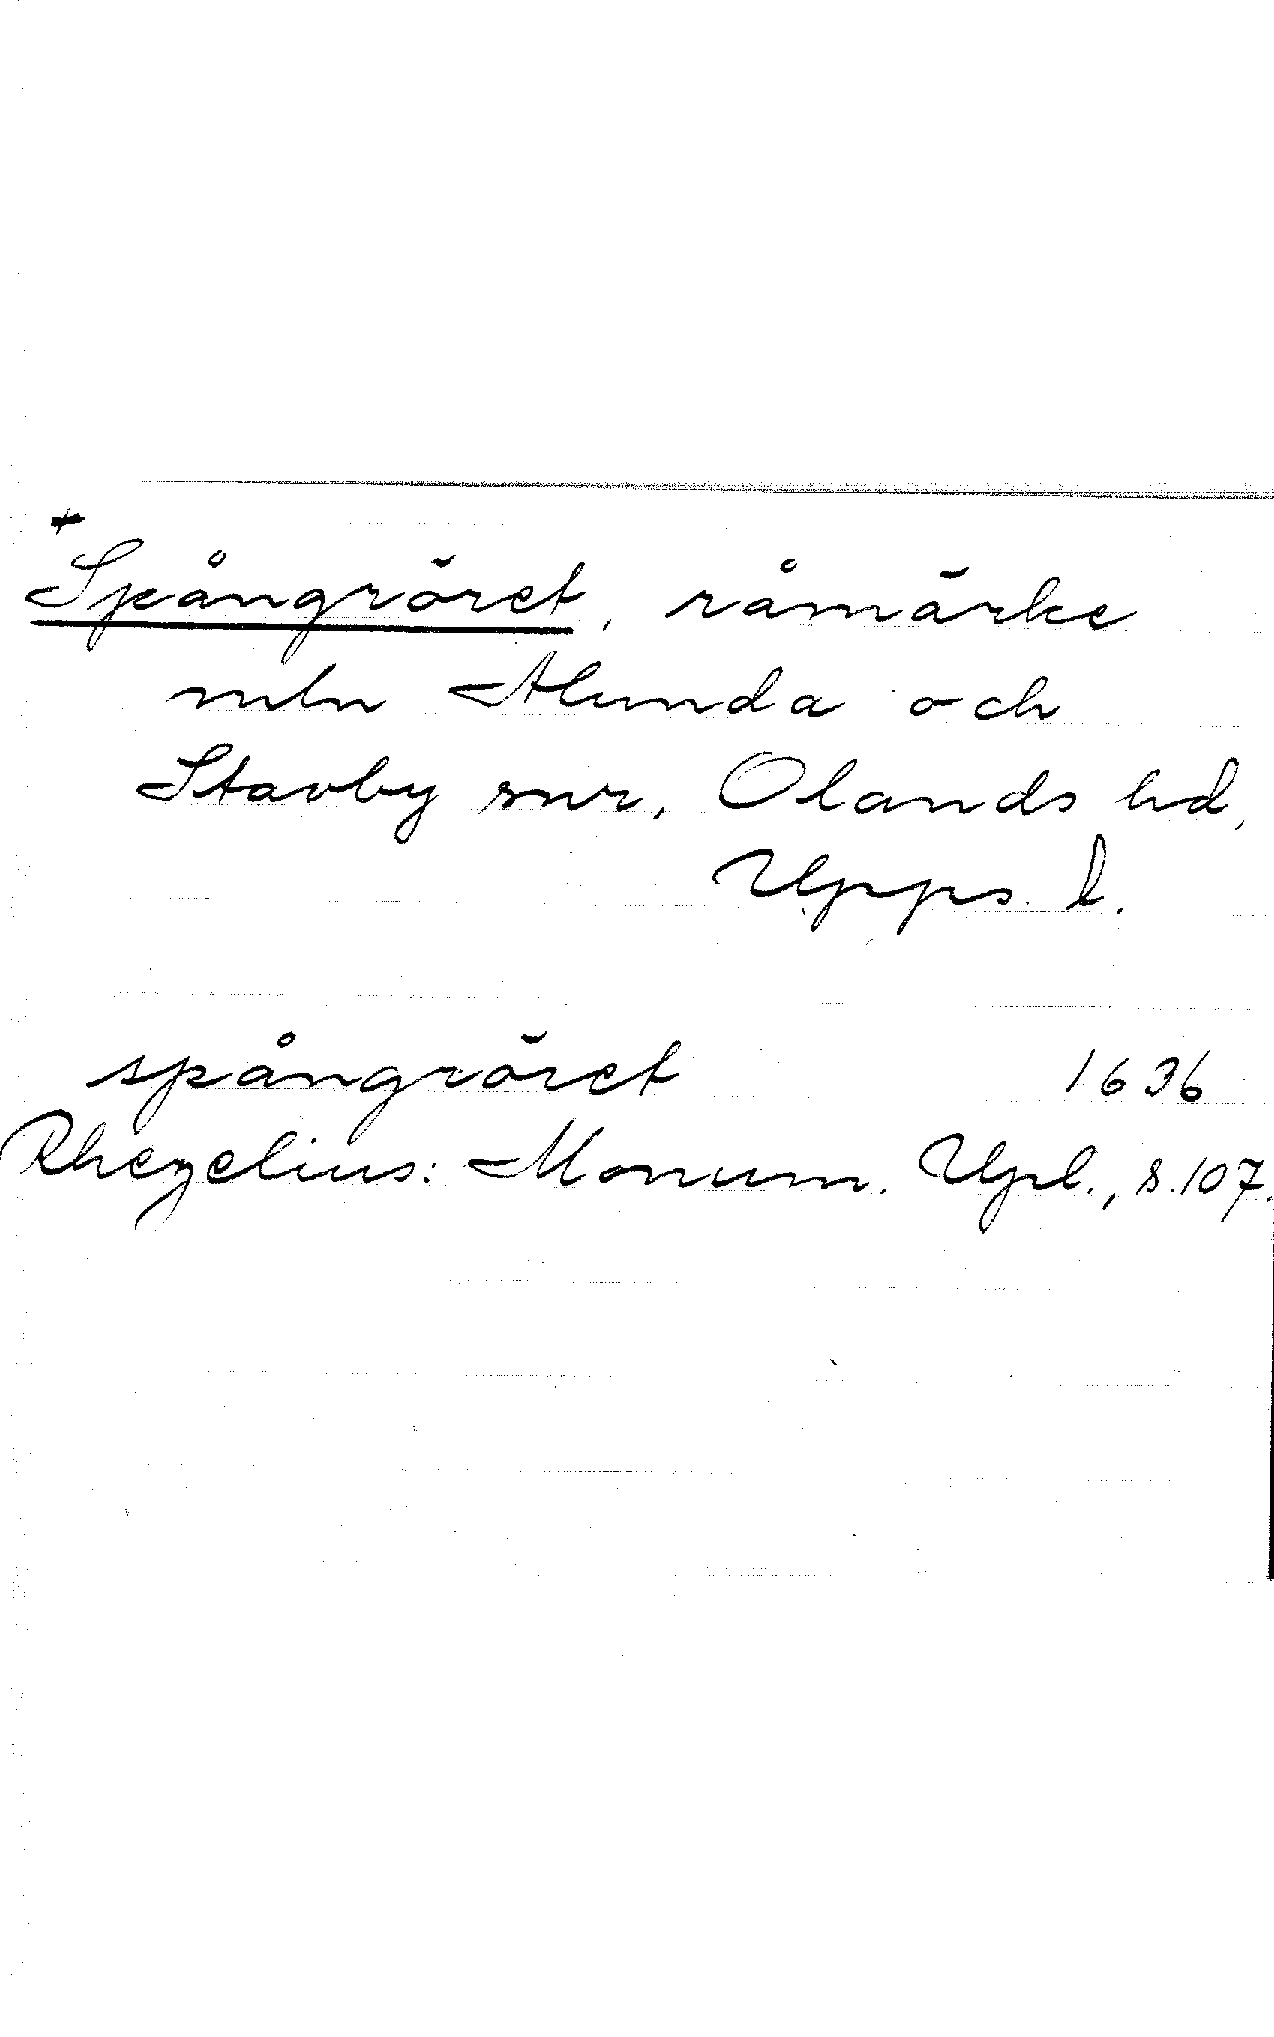 *Spångröret, råmärke
mln Alunda och
Stavby snr, Olands hd,
Upps. l.
spångröret 1636
Rhezelius: Monum. Upl., s. 107.